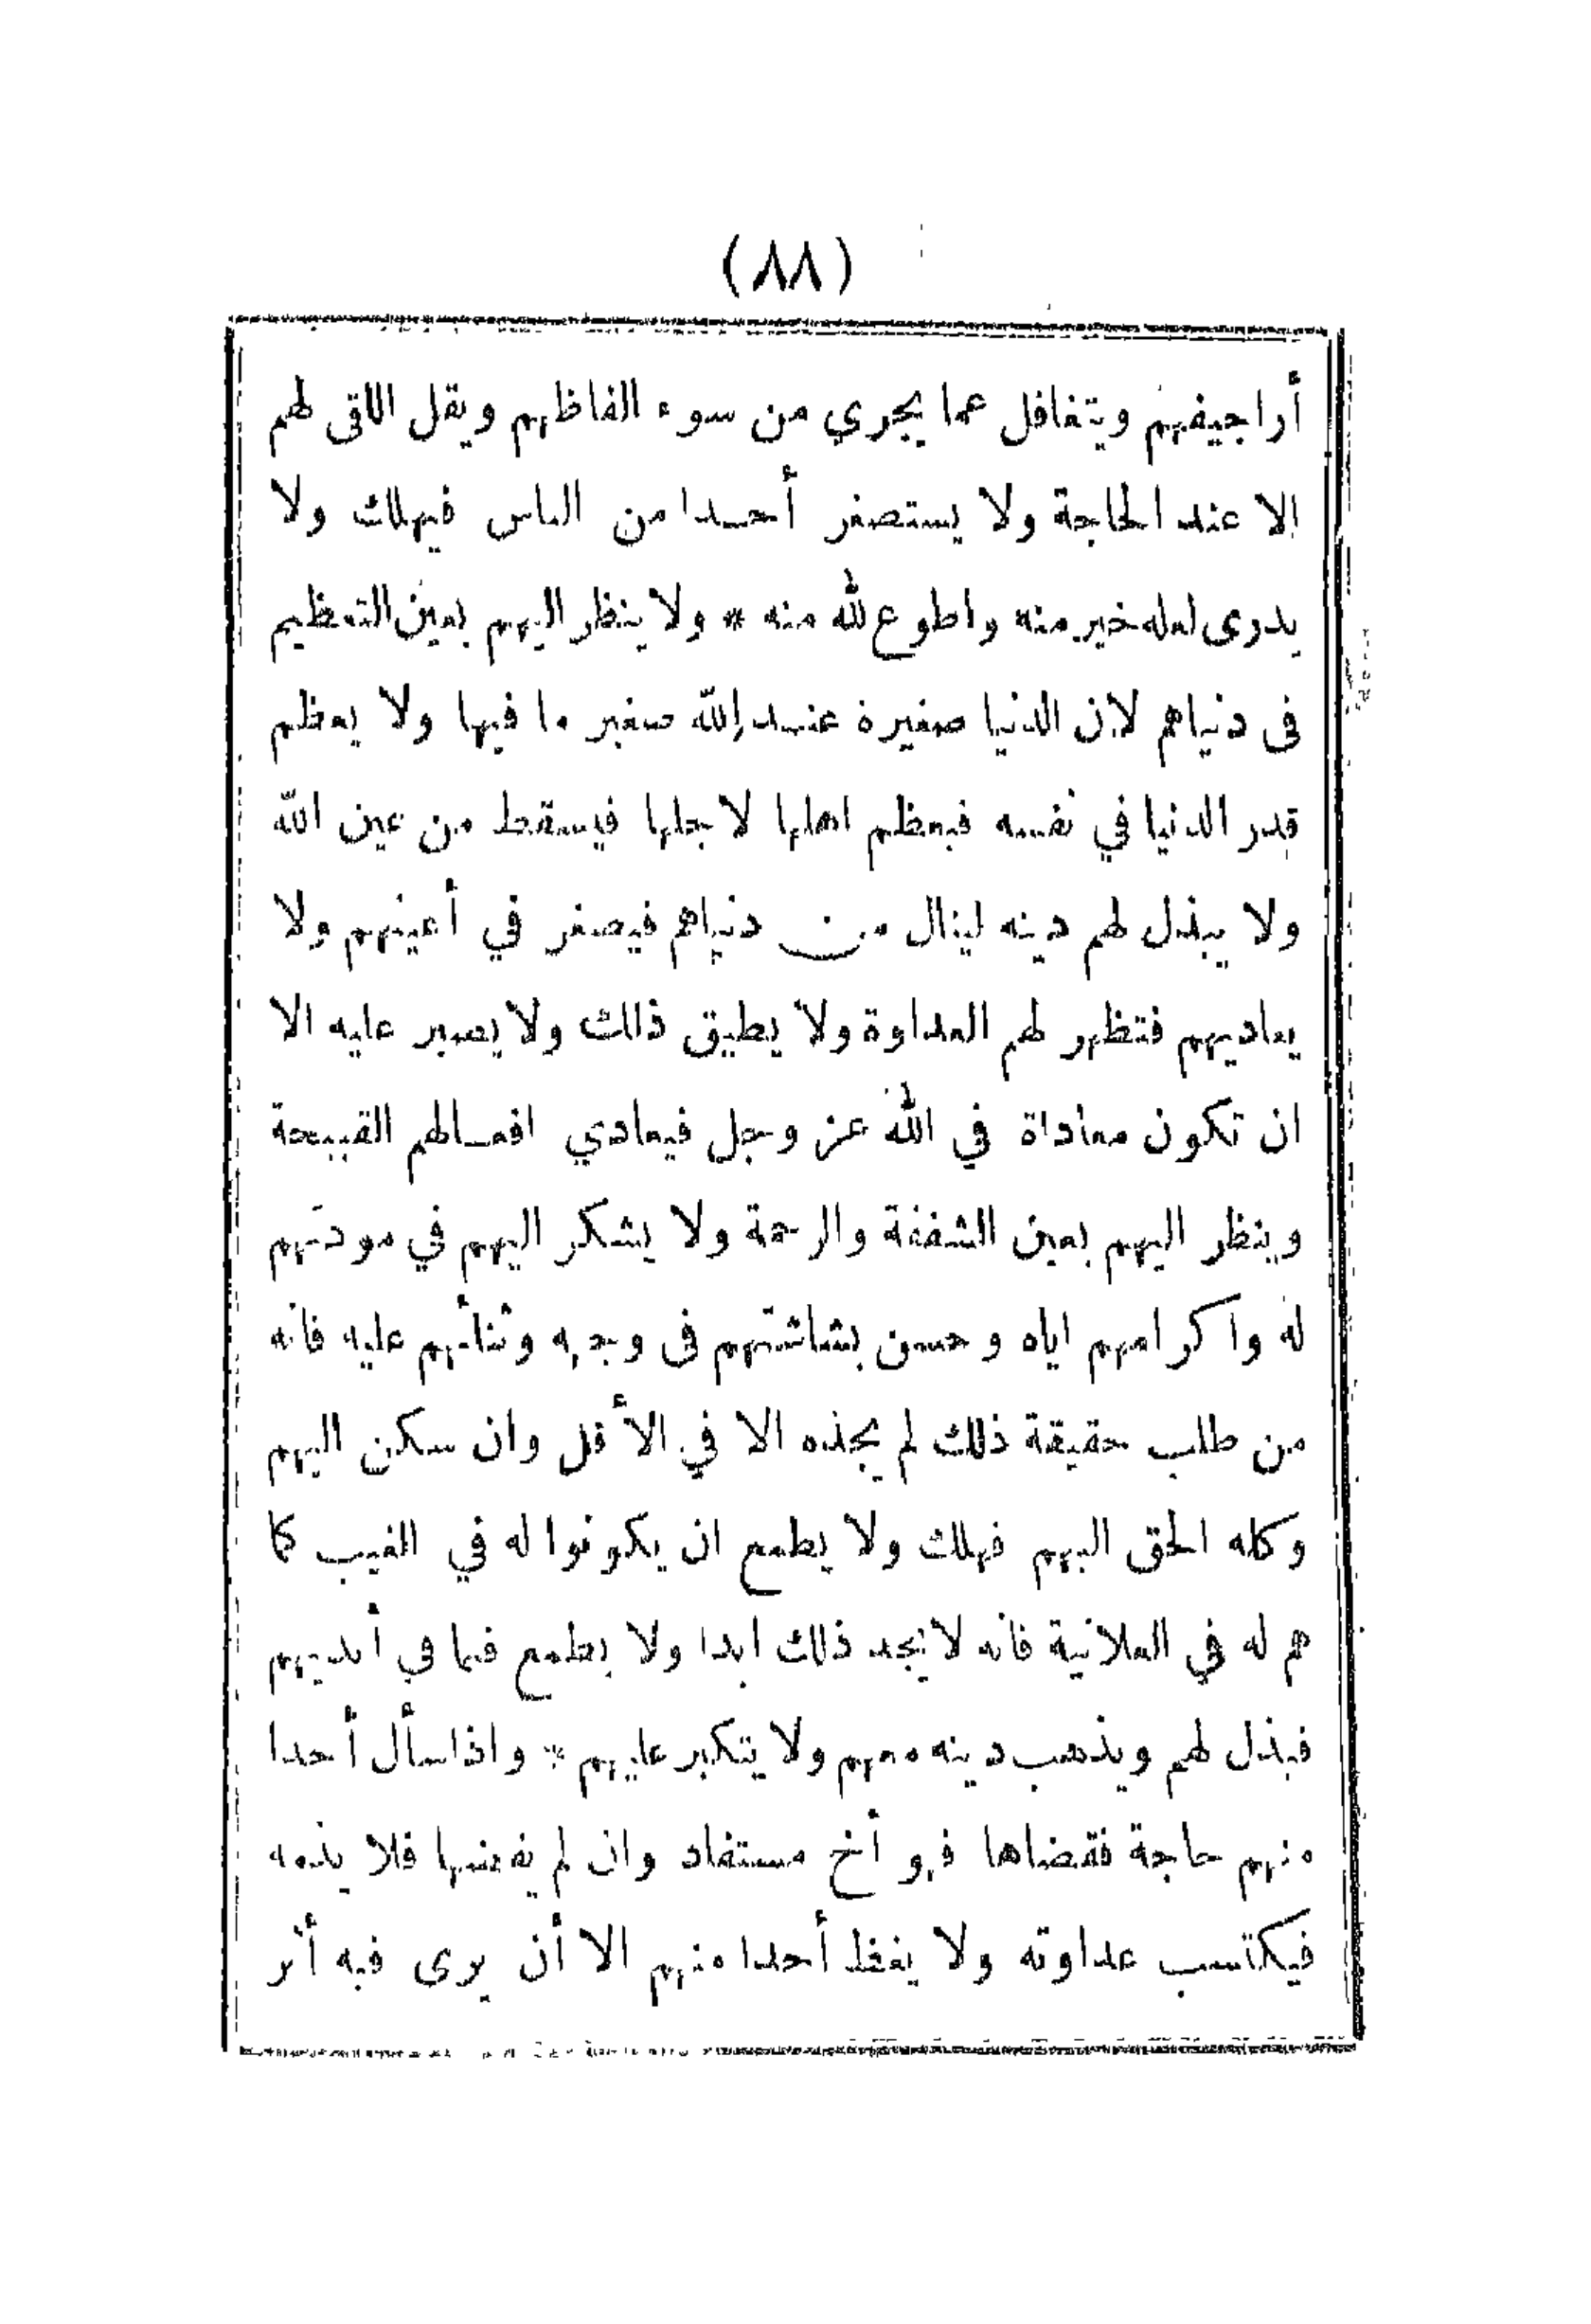 (٨٨)
أراجيفهم ويتغافل عما يجري من سوء الفاظهم ويقل اللاقى لهم
الا عند الحاجة ولا يستصغر أحدا من الناس فيهلك ولا
يدرى لعله خير منه واطوع لله منه * ولا ينظر اليهم بعين التعظيم
فى دنياهم لان الدنيا صغيرة عند الله صغير ما فيها ولا يعظم
قدر الدنيا في نفسه فيعظم اهلها لاجلها فيسقط من عين الله
ولا يبذل لهم دينه لينال من دنياهم فيصغر في أعينهم ولا
يعاديهم فتظهر لهم العداوة ولا يطيق ذلك ولا يصبر عليه الا
ان تكون معاداة في الله عز وجل فيعادي افعالهم القبيحة
وينظر اليهم بعين الشفقة والرحمة ولا يشكر اليهم في مودتهم
له واكرامهم اياه وحسن بشاشتهم فى وجهه وثنأئهم عليه فانه
من طلب حقيقة ذلك لم يجده الا في الأقل وان سكن اليهم
وكله الحق اليهم فهلك ولا يطمع ان يكونوا له في الغيب كما
هم له في العلانية فانه لا يجد ذلك ابدا ولا يطمع فيما في أيديهم
فيذل لهم ويذهب دينه معهم ولا يتكبر عليهم * واذا سأل أحدا
منهم حاجة فقضاها فهو أخ مستفاد وان لم يقضها فلا يذمه
فيكتسب عداوته ولا يعظ أحدا منهم الا أن يرى فيه أثر